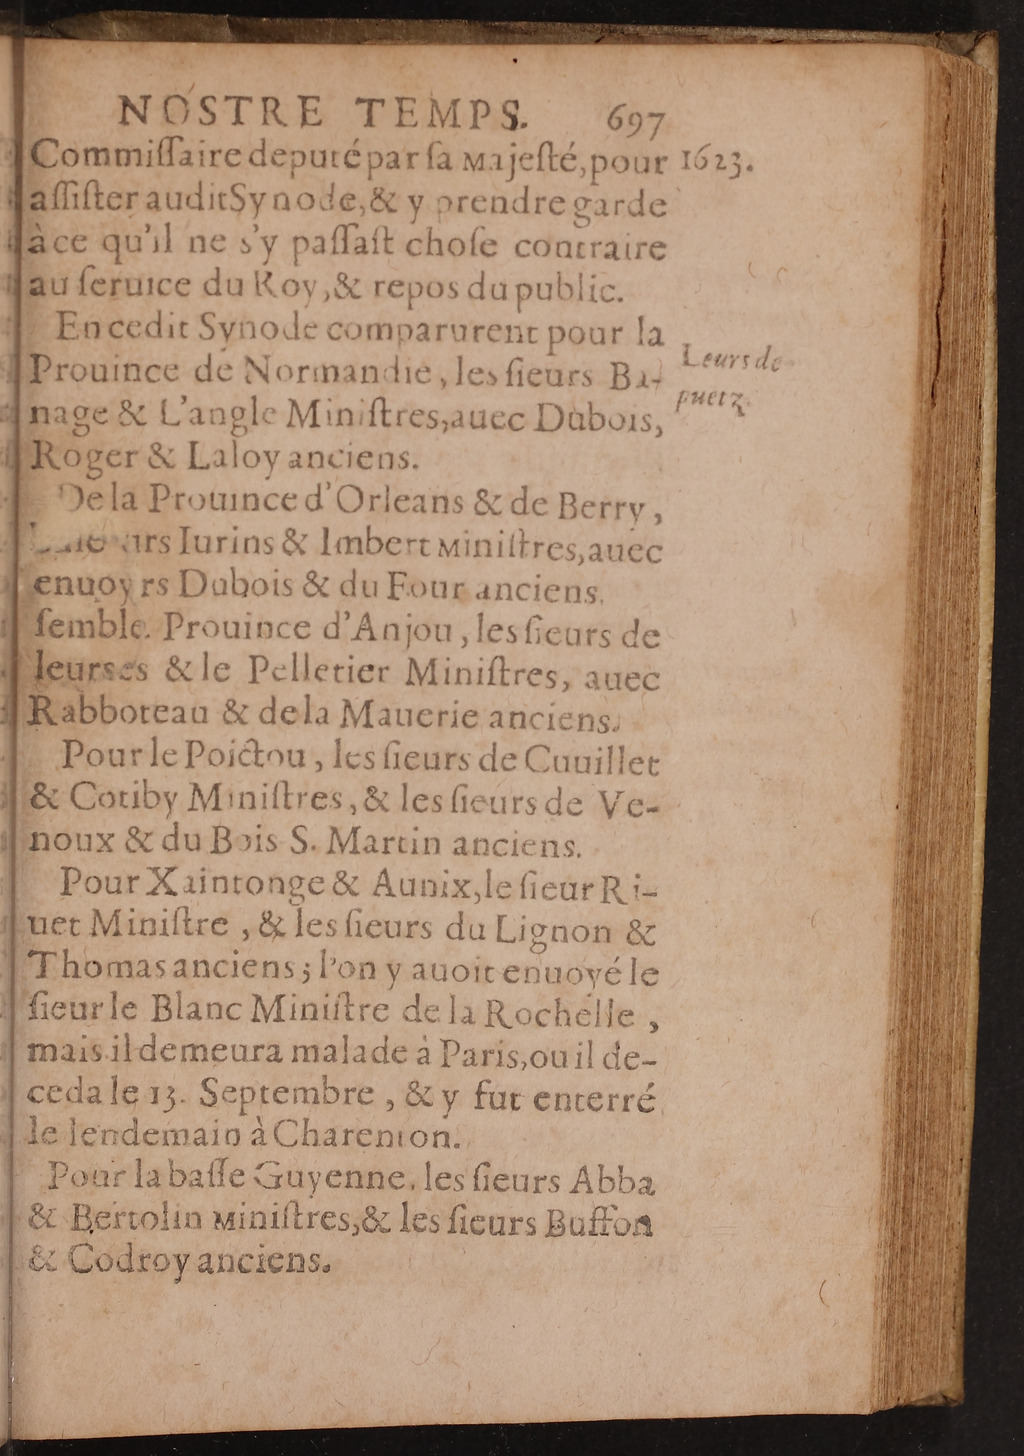 NOSTRE TEMPS. 697
Commiſſaire deputé par ſa Majeſté, pour 1623.
aſſiſter audit Synode, & y prendre garde
à ce qu'il ne s'y paſſaſt choſe contraire
au ſeruice du Roy, & repos du public.
En cedit Synode comparurent pour la
Prouince de Normandie, les ſieurs Ba-
Leurs de
puetz.
nage & L'angle Miniſtres, auec Dubois,
Roger & Laloy anciens.
De la Prouince d'Orleans & de Berry,
Iurins & Imbert Miniſtres, auec
enuoyrs Dubois & du Four anciens.
ſemble. Prouince d'Anjou, les ſieurs de
leurses & le Pelletier Miniſtres, auec
Rabboteau & de la Mauerie anciens.
Pour le Poictou, les ſieurs de Cuuillet
& Cotiby Miniſtres, & les ſieurs de Ve-
noux & du Bois S. Martin anciens.
Pour Xaintonge & Aunix, le ſieur Ri-
uet Miniſtre, & les ſieurs du Lignon &
Thomas anciens; l'on y auoit enuoyé le
ſieur le Blanc Miniſtre de la Rochelle,
mais il demeura malade à Paris, ou il de-
ceda le 13. Septembre, & y fut enterré
le lendemain à Charenton.
Pour la baſſe Guyenne, les ſieurs Abba
& Bertolin Miniſtres, & les ſieurs Buffon
& Codroy anciens.